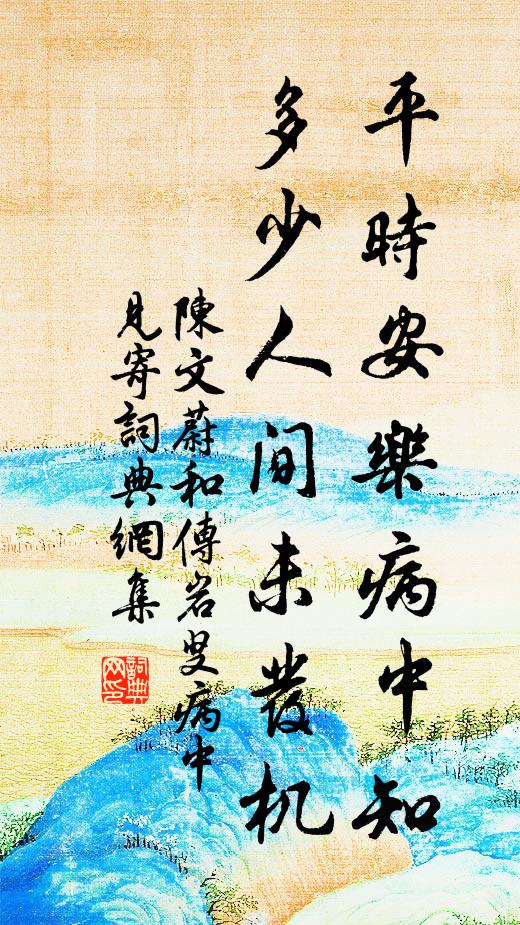 平時安樂病中知
多少人間未發机
陳文蔚和傅岩叟病中
見寄詞典網集
詞典网印